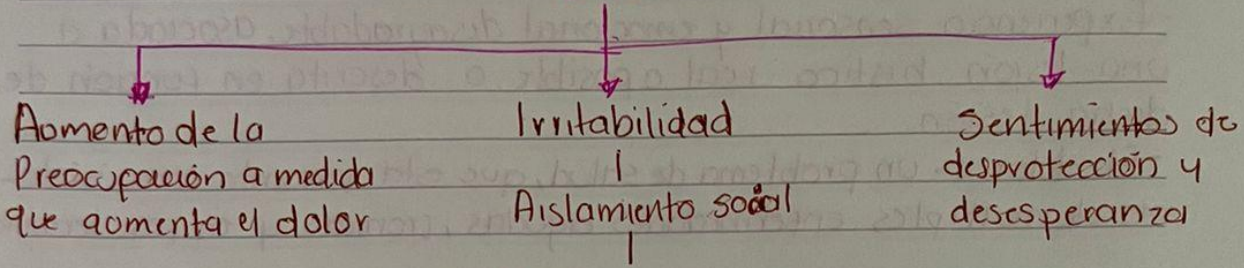 Aomento de la
Preocupación a medida
que aomenta el dolor
Irritabilidad
Aislamiento social
Sentimientos de
desprotección y
desesperanza